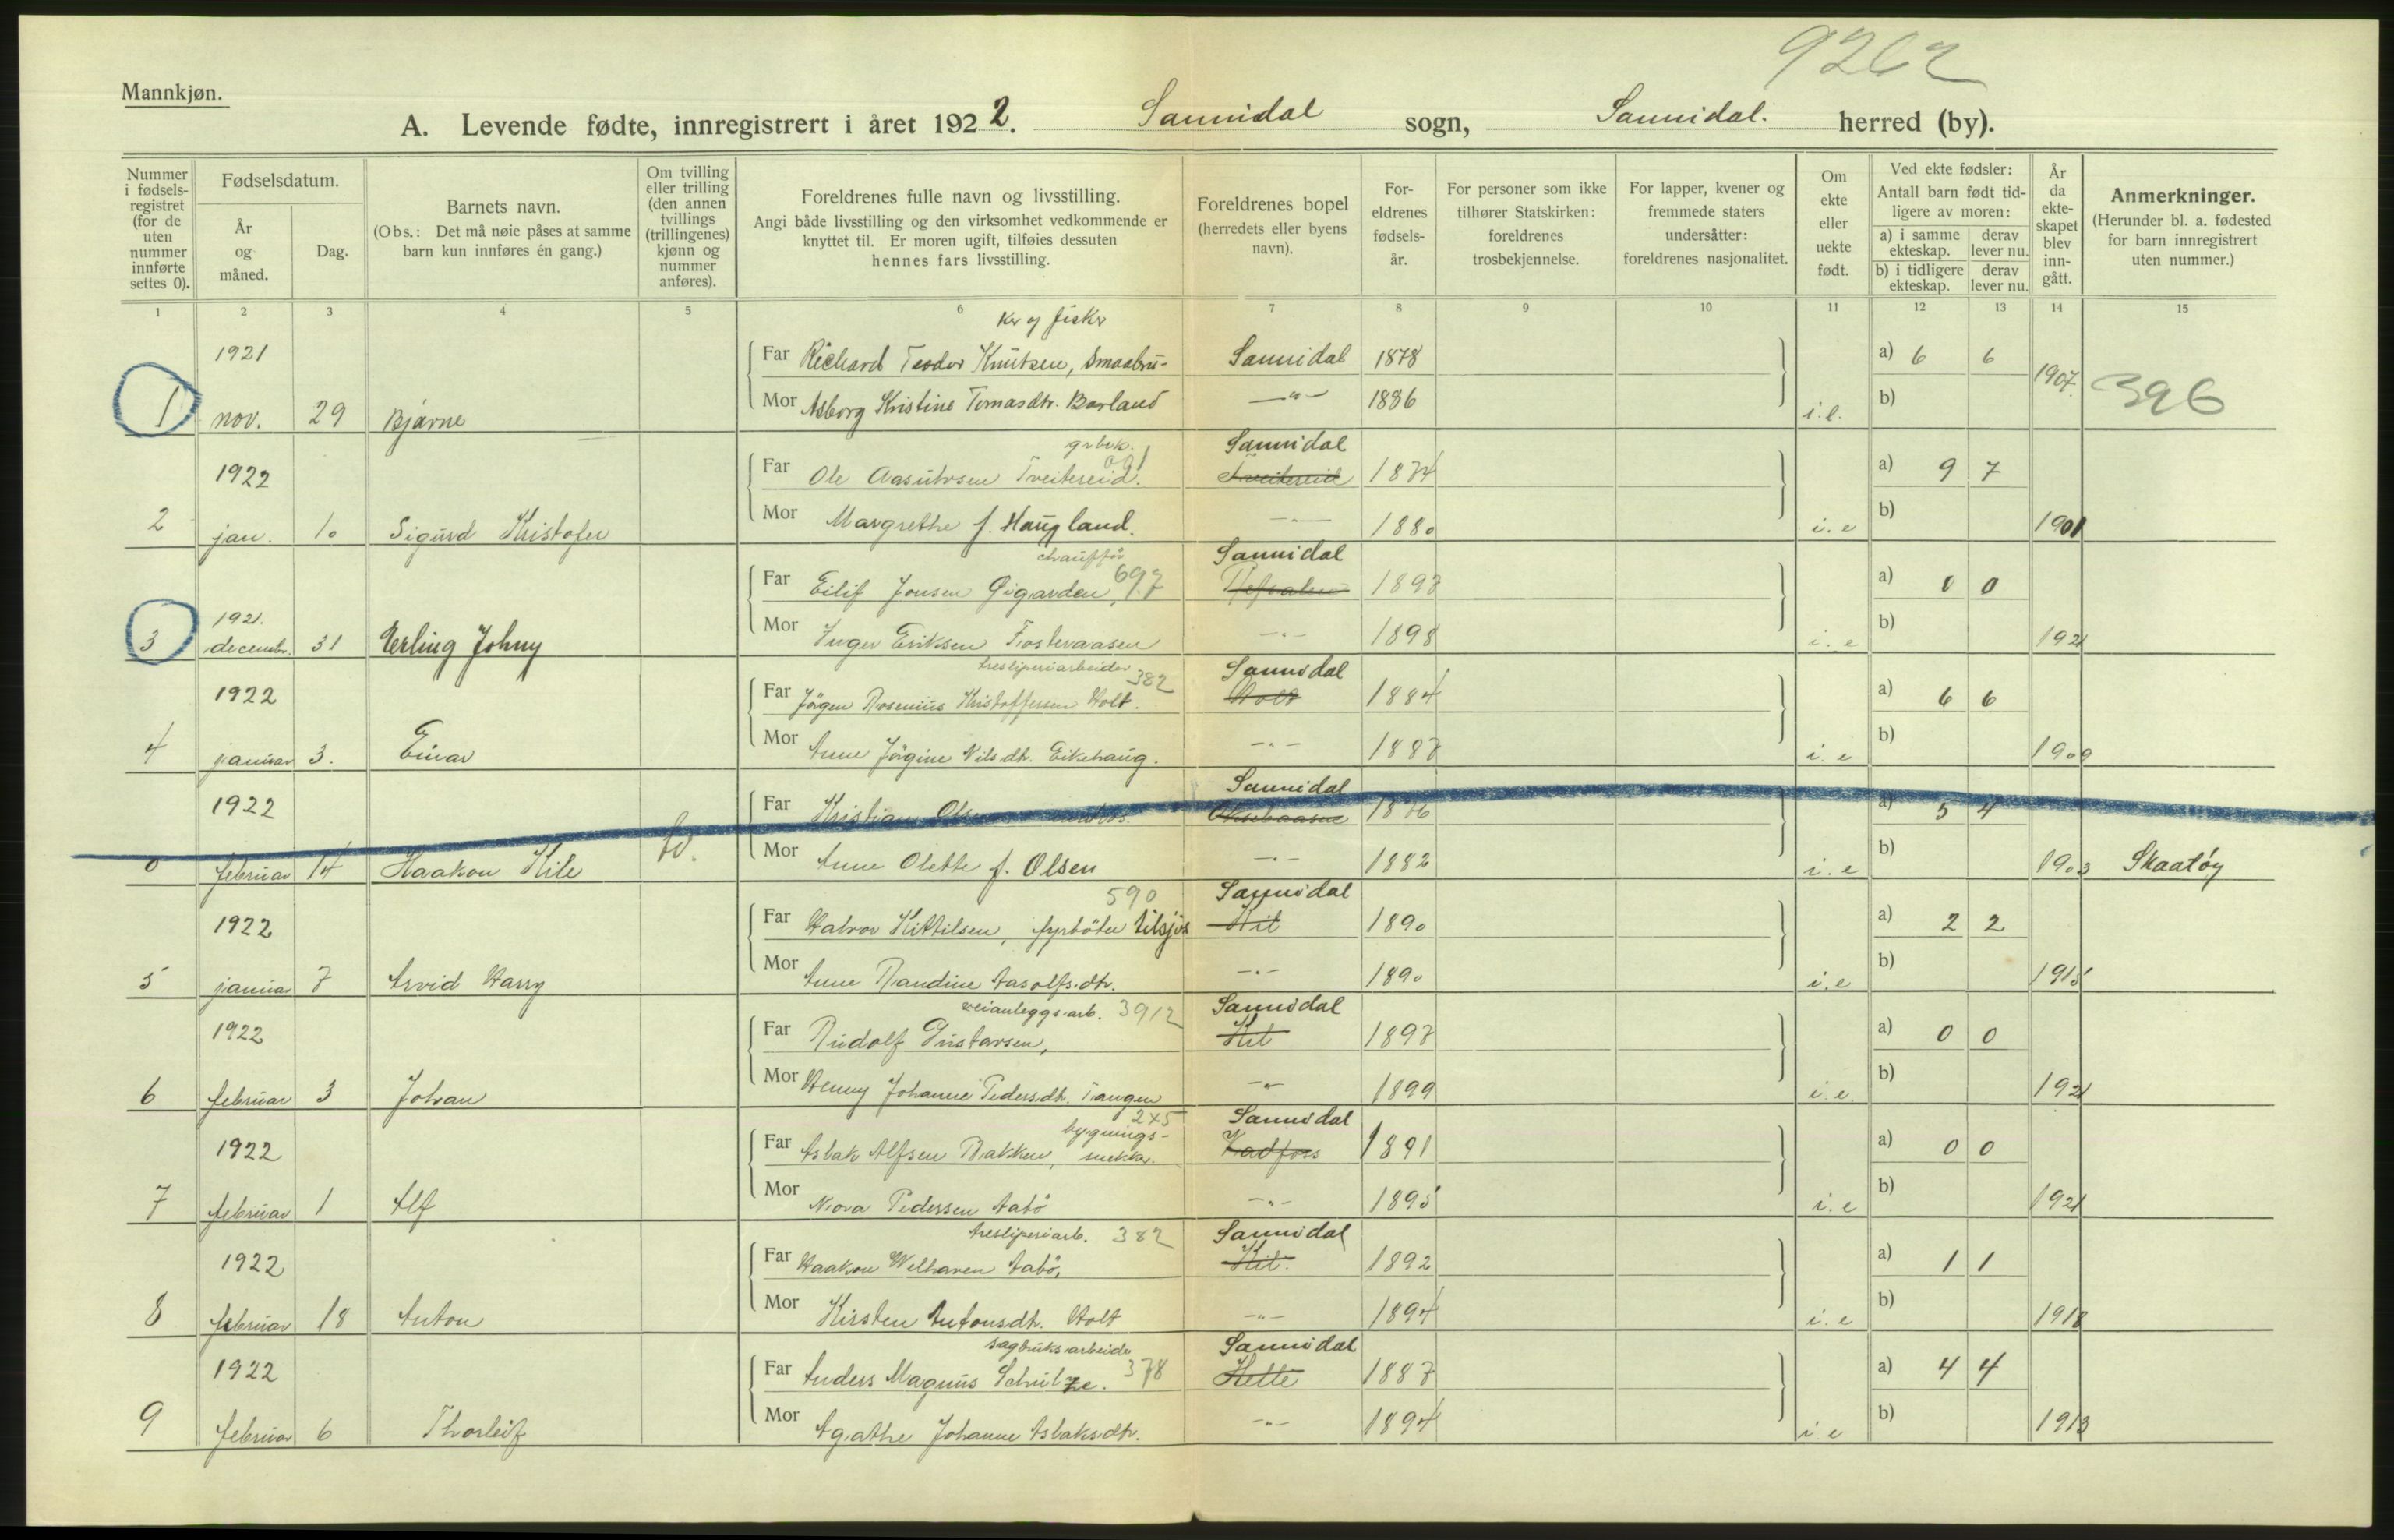 9262
Mannkjøn.
A. Levende fødte, innregistrert i året 1922. Sannidal sogn, Sannidal. herred (by).
Nummer i fødselsregistret (for de uten nummer innførte settes 0).
Fødselsdatum.
År og måned.
Dag.
Barnets navn.
(Obs.: Det må nøie påses at samme barn kun innføres én gang.)
Om tvilling eller trilling (den annen tvillings (trillingenes) kjønn og nummer anføres).
Foreldrenes fulle navn og livsstilling.
Angi både livsstilling og den virksomhet vedkommende er knyttet til. Er moren ugift, tilføies dessuten hennes fars livsstilling.
Foreldrenes bopel (herredets eller byens navn).
Foreldrenes fødselsår.
For personer som ikke tilhører Statskirken: foreldrenes trosbekjennelse.
For lapper, kvener og fremmede staters undersåtter: foreldrenes nasjonalitet.
Om ekte eller uekte født.
Ved ekte fødsler:
Antall barn født tidligere av moren:
a) i samme ekteskap. derav lever nu.
b) i tidligere ekteskap. derav lever nu.
År da ekteskapet blev inngått.
Anmerkninger.
(Herunder bl. a. fødested for barn innregistrert uten nummer.)
1 2 3 4 5 6 7 8 9 10 11 12 13 14 15
kr og fisker
1921 Far Richard Teodor Knutsen, Smaabru- Sannidal 1878 a) 6 6
1 nov. 29 Bjarne Mor Asborg Kristine Tomasdtr. Barland -"- 1886 i.e. b) 1907 396
grbr. Sannidal
1922 Far Ole Aasulvsen Tveitereid. 091 Tveitereid 1874 a) 9 7
2 jan. 10 Sigurd Kristofer Mor Margrethe f. Haugland. -"- 1880 i.e b) 1901
chauffør Sannidal
1921. Far Eilif Jonsen Gigarden, 697 1897 a) 0 0
3 decembr. 31 Erling Johny Mor Inger Eriksen Fostervaasen -"- 1898 i.e b) 1921
tresliperiarbeider 382 Sannidal
1922 Far Jörgen Rosenius Kristoffersen Holt. Holt 1884 a) 6 6
4 januar 3. Einar Mor Anne Jörgine Nilsdtr. Eikehaug. -"- 1887 i.e b) 1909
Sannidal
1922 Far Kristian 1876 a) 5 4
0 februar 14 Haakon Kile Mor Anne Olette f. Olsen -"- 1882 i.e b) 1903 Skaatöy
590 Sannidal
1922 Far Halvor Kittilsen, fyrböter tilsjös Kil 1890 a) 2 2
5 januar 7 Arvid Harry Mor Anne Randine Aasolfsdtr. -"- 1890 i.e b) 1915
veianleggsarb. 3912 Sannidal
1922 Far Rudolf Gustavsen, Kil 1897 a) 0 0
6 februar 3 Johan Mor Henny Johanne Pedersdtr. Tangen -"- 1899 i.e. b) 1921
245 Sannidal
bygnings-
1922 Far Aslak Alfsen Bakken, snekker. Kadfoss 1891 a) 0 0
7 februar 1 Alf Mor Nora Pedersen Aabö -"- 1895 i.e b) 1921
tresliperiarb. 382 Sannidal
1922 Far Haakon Welhaven Aabö, Kil. 1892 a) 1 1
8 februar 18 Anton Mor Kirsten Antonsdtr. Holt -"- 1894 i.e b) 1918
sagbruksarbeider 378 Sannidal
1922 Far Anders Magnus Schulze. Helle 1887 a) 4 4
9 februar 6 Thorleif Mor Agathe Johanne Aslaksdtr. -"- 1894 i e b) 1913